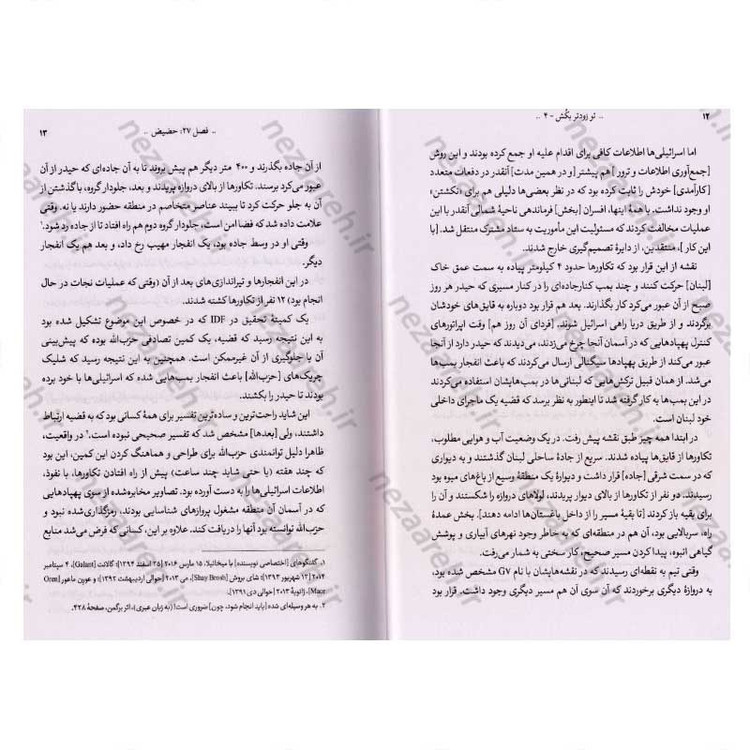 ۱۲ .. تو زودتر بکُش - ۴ ..
اما اسرائیلی‌ها اطلاعات کافی برای اقدام علیه او جمع کرده بودند و این روش
[جمع‌آوری اطلاعات و ترور] هم پیشتر [و در همین مدت] آنقدر در دفعات متعدد
[کارآمدی] خودش را ثابت کرده بود که در نظر بعضی‌ها دلیلی هم برای «نکشتن»
او وجود نداشت. با همهٔ اینها، افسران [بخش] فرماندهی ناحیهٔ شمالی آنقدر با این
عملیات مخالفت کردند که مسئولیت این مأموریت به ستاد مشترک منتقل شد. [با
این کار ]، منتقدین، از دایرهٔ تصمیم‌گیری خارج شدند.
نقشه از این قرار بود که تکاورها حدود ۴ کیلومتر پیاده به سمت عمق خاک
[لبنان] حرکت کنند و چند بمب کنارجاده‌ای را در کنار مسیری که حیدر هر روز
صبح از آن عبور می‌کرد کار بگذارند. بعد هم قرار بود دوباره به قایق‌های خودشان
برگردند و از طریق دریا راهی اسرائیل شوند. [فردای آن روز هم] وقت اپراتورهای
کنترل پهپادهایی که در آسمان آنجا چرخ می‌زدند، می‌دیدند که حیدر دارد از آنجا
عبور می‌کند از طریق پهپادها سیگنالی ارسال می‌کردند که باعث انفجار بمب‌ها
می‌شد. از همان قبیل ترکش‌هایی که لبنانی‌ها در بمب‌هایشان استفاده می‌کردند
در این بمب‌ها به کار گرفته شد تا اینطور به نظر برسد که قضیه یک ماجرای داخلی
خود لبنان است.
در ابتدا همه چیز طبق نقشه پیش رفت. در یک وضعیت آب و هوایی مطلوب،
تکاورها از قایق‌ها پیاده شدند. سریع از جادهٔ ساحلی لبنان گذشتند و به دیواری
که در سمت شرقی [جاده] قرار داشت و دیوارهٔ یک منطقهٔ وسیع از باغ‌های میوه بود
رسیدند. دو نفر از تکاورها از بالای دیوار پریدند، لولاهای دروازه را شکستند و آن را
برای بقیه باز کردند [تا بقیهٔ مسیر را از داخل باغستان‌ها ادامه دهند]. بخش عمدهٔ
راه، سربالایی بود، آن هم در منطقه‌ای که به خاطر وجود نهرهای آبیاری و پوشش
گیاهی انبوه، پیدا کردن مسیر صحیح، کار سختی به شمار می‌رفت.
وقتی تیم به نقطه‌ای رسیدند که در نقشه‌هایشان با نام G۷ مشخص شده بود،
به دروازهٔ دیگری برخوردند که آن سوی آن هم مسیر دیگری وجود داشت. قرار بود
.. فصل ۲۷: حضیض .. ۱۳
از آن جاده بگذرند و ۴۰۰ متر دیگر هم پیش بروند تا به آن جاده‌ای که حیدر از آن
عبور می‌کرد برسند. تکاورها از بالای دروازه پریدند و بعد، جلودار گروه، با گذشتن از
آن به جلو حرکت کرد تا ببیند عناصر متخاصم در منطقه حضور دارند یا نه. وقتی
علامت داده شد که فضا امن است، جلودار گروه دوم هم راه افتاد تا از جاده رد شود.۱
وقتی او در وسط جاده بود، یک انفجار مهیب رخ داد، و بعد هم یک انفجار
دیگر.
در این انفجارها و تیراندازی‌های بعد از آن (وقتی که عملیات نجات در حال
انجام بود) ۱۲ نفر از تکاورها کشته شدند.
یک کمیتهٔ تحقیق در IDF که در خصوص این موضوع تشکیل شده بود
به این نتیجه رسید که قضیه، یک کمین تصادفی حزب‌الله بوده که پیش‌بینی
آن یا جلوگیری از آن غیرممکن است. همچنین به این نتیجه رسید که شلیک
چریک‌های [حزب‌الله] باعث انفجار بمب‌هایی شده که اسرائیلی‌ها با خود برده
بودند تا حیدر را بکشند.
این شاید راحت‌ترین و ساده‌ترین تفسیر برای همهٔ کسانی بود که به قضیه ارتباط
داشتند، ولی [بعدها] مشخص شد که تفسیر صحیحی نبوده است.۲ در واقعیت،
ظاهرا دلیل توانمندی حزب‌الله برای طراحی و هماهنگ کردن این کمین، این بود
که چند هفته (یا حتی شاید چند ساعت) پیش از راه افتادن تکاورها، با نفوذ،
اطلاعات اسرائیلی‌ها را به دست آورده بود. تصاویر مخابره‌شده از سوی پهپادهایی
که در آسمان آن منطقه مشغول پروازهای شناسایی بودند، رمزگذاری‌شده نبود و
حزب‌الله توانسته بود آنها را دریافت کند. علاوه بر این، کسانی که فرض می‌شد منابع
۱. گفتگوهای [اختصاصی نویسنده] با میخائیلا، ۱۵ مارس ۲۰۱۶ [۲۵ اسفند ۱۳۹۴]؛ گالانت [Galant]، ۴ سپتامبر
۲۰۱۴ [۱۳ شهریور ۱۳۹۳]؛ شای بروش [Shay Brosh]، می ۲۰۱۳ [حوالی اردیبهشت ۱۳۹۲] و عورن ماعور [Oren
Maor]، ژانویهٔ ۲۰۱۳ [حوالی دی ۱۳۹۱].
۲. به هر وسیله‌ای شده [باید انجام شود، چون] ضروری است! (به زبان عبری)، اثر برگمن، صفحهٔ ۴۲۸.
nezaareh.ir